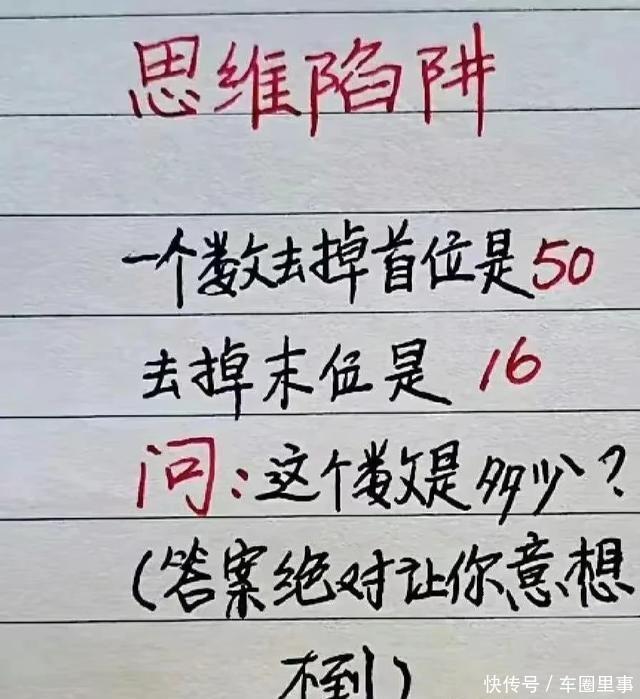 思维陷阱
一个数去掉首位是50
去掉末位是 16
问:这个数是多少?
(答案绝对让你意想
不到)
快传号/车圈里事